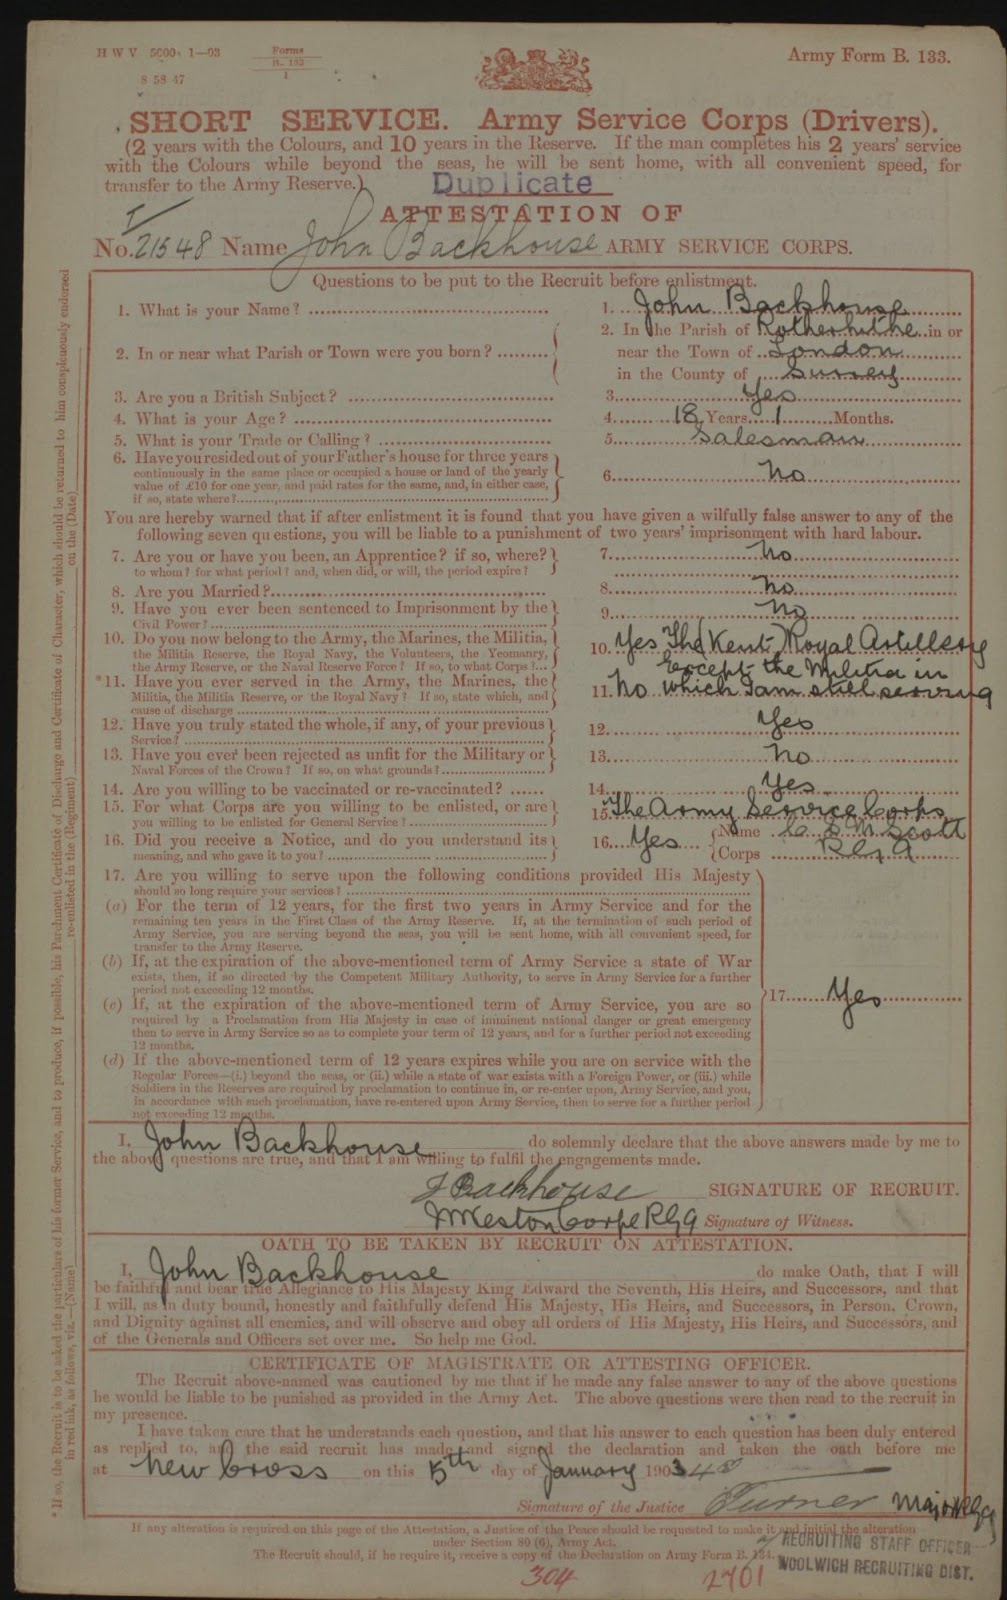 H W V 5000 1—03
Forms
B. 133
1
Army Form B. 133.
8 58 47
SHORT SERVICE. Army Service Corps (Drivers).
(2 years with the Colours, and 10 years in the Reserve. If the man completes his 2 years' service
with the Colours while beyond the seas, he will be sent home, with all convenient speed, for
transfer to the Army Reserve.)
Duplicate
ATTESTATION OF
No. 21548 Name John Backhouse ARMY SERVICE CORPS.
Questions to be put to the Recruit before enlistment.
1. What is your Name? 1. John Backhouse
2. In or near what Parish or Town were you born? 2. In the Parish of Rotherhithe in or
near the Town of London
in the County of Surrey
3. Are you a British Subject? 3. Yes
4. What is your Age? 4. 18 Years 1 Months.
5. What is your Trade or Calling? 5. Salesman
6. Have you resided out of your Father's house for three years
continuously in the same place or occupied a house or land of the yearly
value of £10 for one year, and paid rates for the same, and, in either case,
if so, state where? 6. No
You are hereby warned that if after enlistment it is found that you have given a wilfully false answer to any of the
following seven questions, you will be liable to a punishment of two years' imprisonment with hard labour.
7. Are you or have you been, an Apprentice? if so, where? 7. No
to whom? for what period? and, when did, or will, the period expire?
8. Are you Married? 8. No
9. Have you ever been sentenced to Imprisonment by the 9. No
Civil Power?
10. Do you now belong to the Army, the Marines, the Militia, 10. Yes The Kent Royal Artillery
the Militia Reserve, the Royal Navy, the Volunteers, the Yeomanry,
the Army Reserve, or the Naval Reserve Force? If so, to what Corps?
*11. Have you ever served in the Army, the Marines, the 11. No except the Militia in
Militia, the Militia Reserve, or the Royal Navy? If so, state which, and which I am still serving
cause of discharge
12. Have you truly stated the whole, if any, of your previous 12. Yes
Service?
13. Have you ever been rejected as unfit for the Military or 13. No
Naval Forces of the Crown? If so, on what grounds?
14. Are you willing to be vaccinated or re-vaccinated? 14. Yes
15. For what Corps are you willing to be enlisted, or are 15. The Army Service Corps
you willing to be enlisted for General Service?
16. Did you receive a Notice, and do you understand its 16. Yes Name C. S. M. Scott
meaning, and who gave it to you? Corps R.G.A
17. Are you willing to serve upon the following conditions provided His Majesty
should so long require your services?
(a) For the term of 12 years, for the first two years in Army Service and for the
remaining ten years in the First Class of the Army Reserve. If, at the termination of such period of
Army Service, you are serving beyond the seas, you will be sent home, with all convenient speed, for
transfer to the Army Reserve.
(b) If, at the expiration of the above-mentioned term of Army Service a state of War
exists, then, if so directed by the Competent Military Authority, to serve in Army Service for a further
period not exceeding 12 months.
(c) If, at the expiration of the above-mentioned term of Army Service, you are so
required by a Proclamation from His Majesty in case of imminent national danger or great emergency
then to serve in Army Service so as to complete your term of 12 years, and for a further period not exceeding
12 months.
(d) If the above-mentioned term of 12 years expires while you are on service with the
Regular Forces—(i.) beyond the seas, or (ii.) while a state of war exists with a Foreign Power, or (iii.) while
Soldiers in the Reserves are required by proclamation to continue in, or re-enter upon, Army Service, and you,
in accordance with such proclamation, have re-entered upon Army Service, then to serve for a further period
not exceeding 12 months.
17. Yes
I, John Backhouse do solemnly declare that the above answers made by me to
the above questions are true, and that I am willing to fulfil the engagements made.
J Backhouse SIGNATURE OF RECRUIT.
Weston Corpl RGA Signature of Witness.
OATH TO BE TAKEN BY RECRUIT ON ATTESTATION.
I, John Backhouse do make Oath, that I will
be faithful and bear true Allegiance to His Majesty King Edward the Seventh, His Heirs, and Successors, and that
I will, as in duty bound, honestly and faithfully defend His Majesty, His Heirs, and Successors, in Person, Crown,
and Dignity against all enemies, and will observe and obey all orders of His Majesty, His Heirs, and Successors, and
of the Generals and Officers set over me. So help me God.
CERTIFICATE OF MAGISTRATE OR ATTESTING OFFICER.
The Recruit above-named was cautioned by me that if he made any false answer to any of the above questions
he would be liable to be punished as provided in the Army Act. The above questions were then read to the recruit in
my presence.
I have taken care that he understands each question, and that his answer to each question has been duly entered
as replied to, and the said recruit has made and signed the declaration and taken the oath before me
at New Cross on this 5th day of January 1903
Signature of the Justice Turner Major RGA
If any alteration is required on this page of the Attestation, a Justice of the Peace should be requested to make it and initial the alteration
under Section 80 (6), Army Act.
The Recruit should, if he require it, receive a copy of the Declaration on Army Form B. 134.
RECRUITING STAFF OFFICER
WOOLWICH RECRUITING DIST.
304 2701
* If so, the Recruit is to be asked the particulars of his former Service, and to produce, if possible, his Parchment Certificate of Discharge and Certificate of Character, which should be returned to him conspicuously endorsed
in red ink, as follows, viz.—(Name) re-enlisted in the (Regiment) on the (Date)